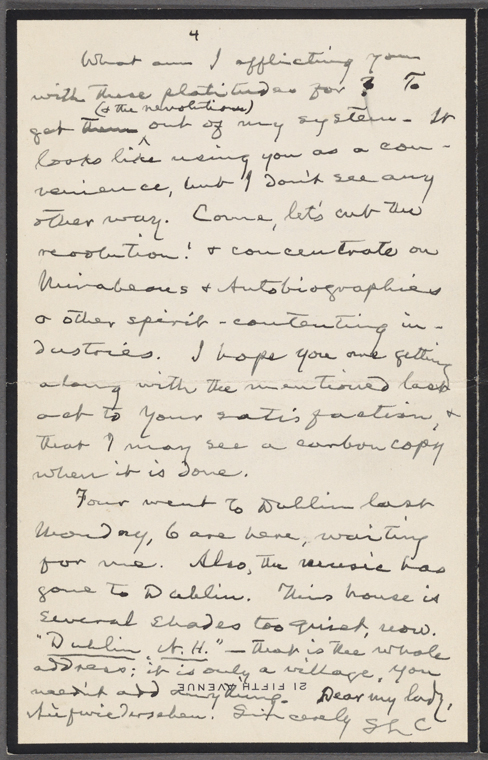 4
What am I afflicting you
with these platitudes for? To
(& the revolution)
get them out of my system. It
looks like using you as a con-
venience, but I don't see any
other way. Come, let's cut the
revolution! & concentrate on
Mirabeaus & Autobiographies
& other spirit-contenting in-
dustries. I hope you are getting
along with the mentioned last
act to your satisfaction, &
that I may see a carbon copy
when it is done.
Four went to Dublin last
Monday, 6 are here, waiting
for me. Also, the music has
gone to Dublin. This house is
several shades too quiet, now.
"Dublin, N. H." — that is the whole
address; it is only a village, you
21 FIFTH AVENUE
needn't add anything. Dear my lady,
Aufwiedersehen. Sincerely SLC